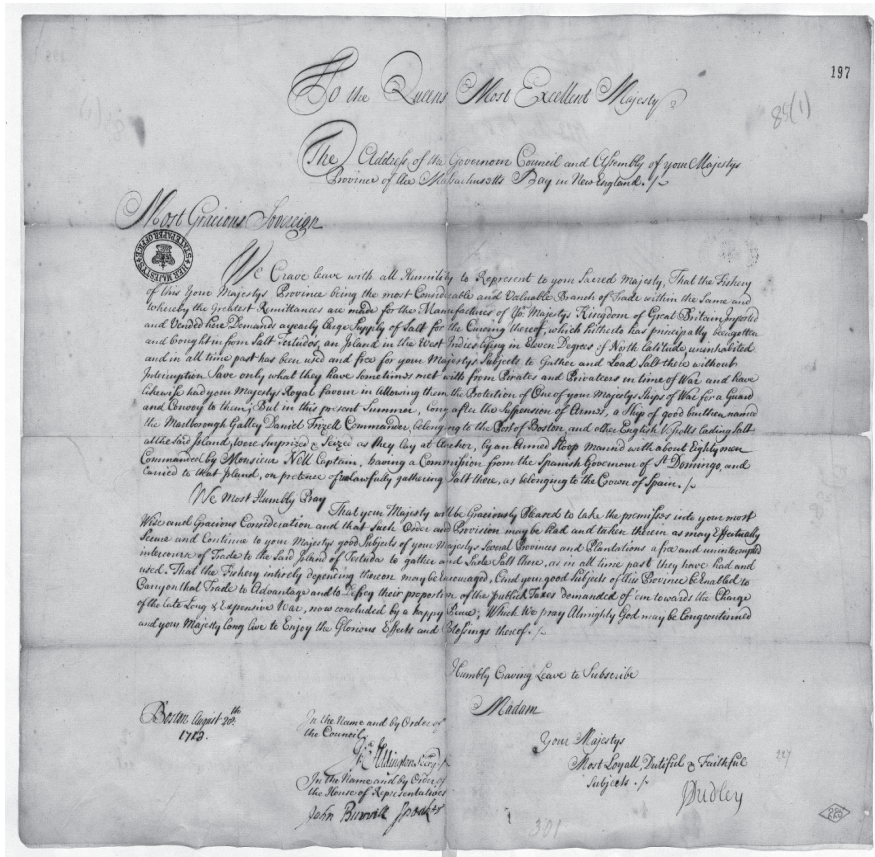 197
85(1)
To the Queens Most Excellent Majesty
The Address of the Governour Council and Assembly of your Majestys
Province of the Massachusetts Bay in New England.
Most Gracious Sovereign
HER MAJESTY'S STATE PAPER OFFICE
We Crave leave with all Humility to Represent to your Sacred Majesty, That the Fishery
of this Your Majestys Province being the most Considerable and Valuable Branch of Trade within the Same and
whereby the Greatest Remittances are made for the Manufactures of Yor Majestys Kingdom of Great Britain Imported
and Vended here Demands a yearly large Supply of Salt for the Cureing thereof, which hitherto has principally been gotten
and bought in from Salt Tertudos, an Island in the West Indies lying in Eleven Degrees of North Latitude, uninhabited
and in all time past has been used and free for your Majestys Subjects to Gather and Load Salt there without
Interruption Save only what they have sometimes met with from Pirates and Privateers in time of War and have
likewise had your Majestys Royal favour in allowing them the Protection of One of your Majestys Ships of War for a Guard
and Convoy to them; But in this present Summer, long after the Suspension of Arms, a Ship of good burthen named
the Marlborough Galley Daniel Frizell Commander, belonging to the Port of Boston, and other English Vessells lading Salt
at the said Island, were Surprized & Seized as they lay at Anchor, by an Armed Sloop manned with about Eighty men
Commanded by Monsieur Nell Captain, having a Commission from the Spanish Governour of St Domingo, and
carried to that Island, on pretence of unlawfully gathering Salt there, as belonging to the Crown of Spain.
We Most Humbly Pray
That your Majesty will be Graciously Pleased to take the premisses into your most
Wise and Gracious Consideration and that such Order and Provision may be had and taken therein as may Effectually
Secure and Continue to your Majestys good Subjects of your Majestys Several Provinces and Plantations a free and uninterrupted
intercourse of Trade to the Said Island of Tertuda to gather and Lade Salt there, as in all time past they have had and
used. That the Fishery intirely depending thereon may be Encouraged, And your good Subjects of this Province be Enabled to
Carry on that Trade to Advantage and to Defrey their proportion of the publick Taxes demanded of 'em towards the Charge
of the late Long & Expensive War, now concluded by a happy Peace; Which We pray Almighty God may be Long continued
and your Majesty long live to Enjoy the Glorious Effects and Blessings thereof.
Humbly Craving Leave to Subscribe
Madam
Your Majestys
Most Loyall, Dutiful & Faithful
Subjects.
JDudley
Boston August 20th
1713.
In the Name and by Order of
the Council,
Js Addington Secry
In the Name and by Order of
the House of Representatives
John Burrill Speakr
301